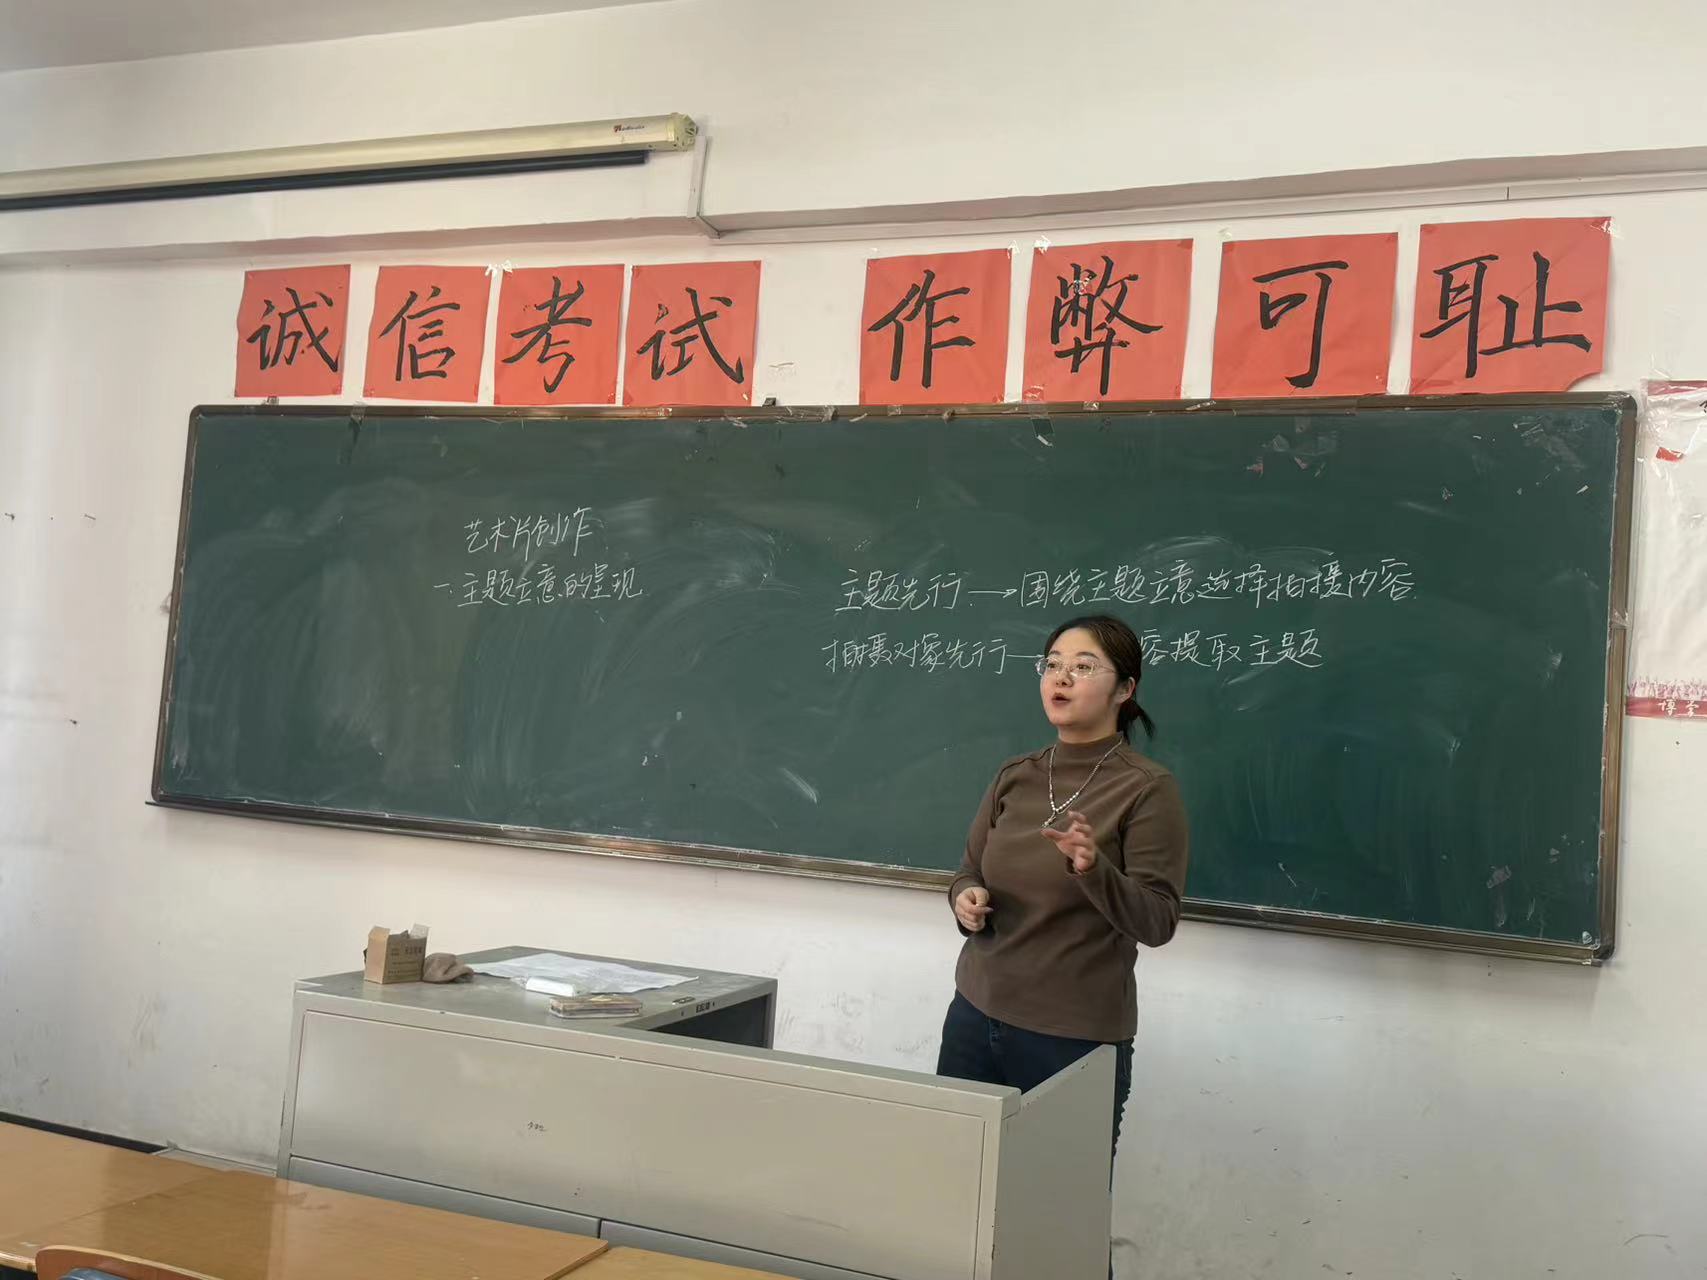 诚信考试 作弊可耻
艺术片创作
一.主题立意的呈现
主题先行.→围绕主题立意选择拍摄内容.
拍摄对象先行—容提取主题
博学